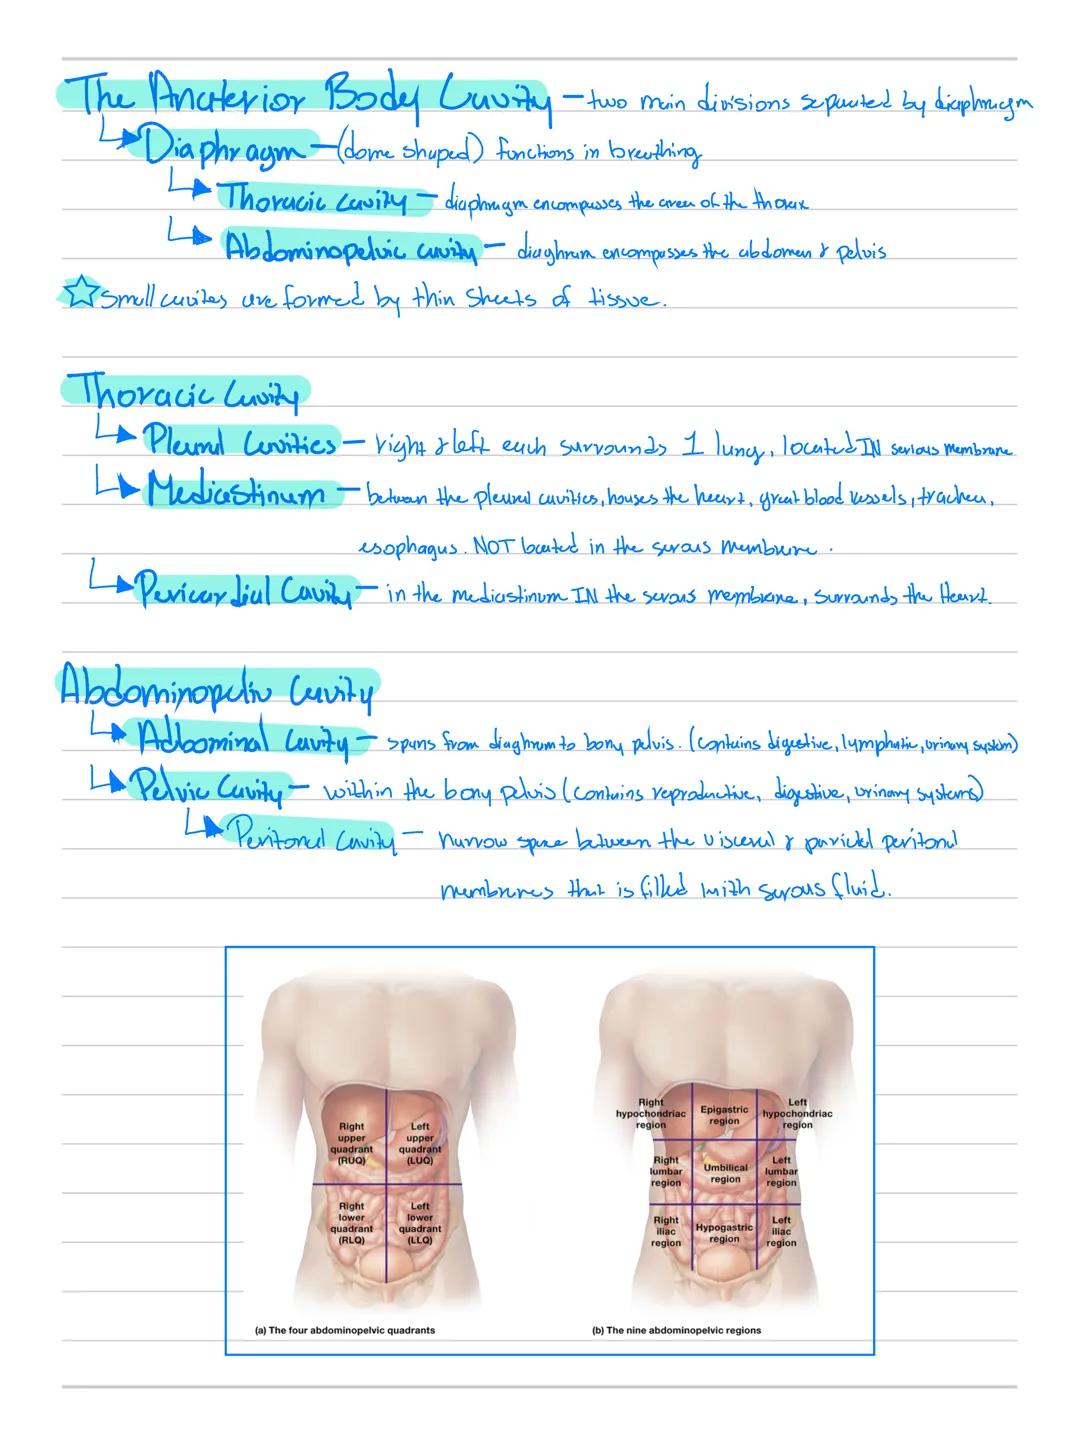 The Anaterior Body Cavity – two main divisions separated by diaphragm
Diaphragm – (dome shaped) functions in breathing
Thoracic cavity – diaphragm encompasses the area of the thorax
Abdominopelvic cavity – diaghram encompasses the abdomen & pelvis
☆ Small cavites are formed by thin sheets of tissue.
Thoracic Cavity
Pleural Cavities – right & left each surrounds 1 lung, located IN serious membrane
Mediastinum – between the pleural cavities, houses the heart, great blood vessels, trachea,
esophagus. NOT located in the serous membrane.
Pericardial Cavity – in the mediastinum IN the serous membrane, surrounds the Heart.
Abdominopelvic Cavity
Adbominal Cavity – spans from diaghram to bony pelvis. (contains digestive, lymphatic, urinary system)
Pelvic Cavity – within the bony pelvis (contains reproductive, digestive, urinary systems)
Peritonel Cavity – narrow space between the visceral & parietal peritonal
membranes that is filled with serous fluid.
Right upper quadrant (RUQ)
Left upper quadrant (LUQ)
Right lower quadrant (RLQ)
Left lower quadrant (LLQ)
(a) The four abdominopelvic quadrants
Right hypochondriac region
Epigastric region
Left hypochondriac region
Right lumbar region
Umbilical region
Left lumbar region
Right iliac region
Hypogastric region
Left iliac region
(b) The nine abdominopelvic regions